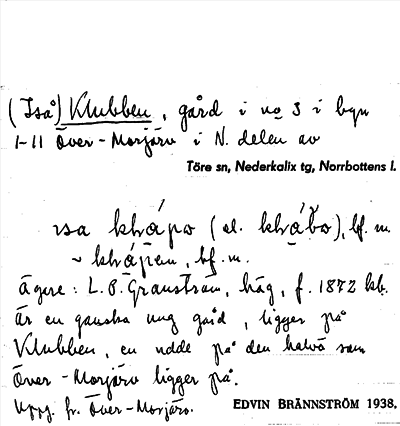 (Iså) Klubben, gård i no 3 i byn
1-11 Över-Morjärv i N. delen av
Töre sn, Nederkalix tg, Norrbottens l.
ɪsa klʉápo (el. ), bf. m.
~ , bf. m.
Ägare: L. P. Granström, häg, f. 1872 kb.
Är en ganska ung gård, ligger på
Klubben, en udde på den halvö som
Över-Morjärv ligger på.
Uppg. fr. Över-Morjärv.
EDVIN BRÄNNSTRÖM 1938.